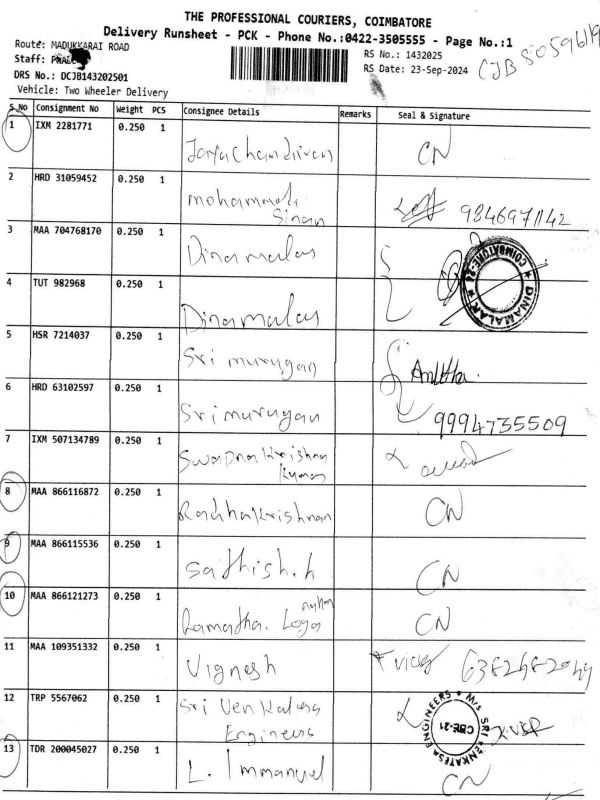 THE PROFESSIONAL COURIERS, COIMBATORE
Delivery Runsheet - PCK - Phone No.:0422-3505555 - Page No.:1
Route: MADUKKARAI ROAD
RS No.: 1432025
Staff:
RS Date: 23-Sep-2024
DRS No.: DCJB143202501
Vehicle: Two Wheeler Delivery
S.No Consignment No Weight PCS Consignee Details Remarks Seal & Signature
1 IXM 2281771 0.250 1 CN
2 HRD 31059452 0.250 1 Mohammed Sinan
3 MAA 704768170 0.250 1 Dinamalar
COIMBATORE * DINAMALAR *
4 TUT 982968 0.250 1 Dinamalar
5 HSR 7214037 0.250 1 Sri murugan
6 HRD 63102597 0.250 1 Sri murugan 9994735509
7 IXM 507134789 0.250 1 Swapnakrishna Kumar
8 MAA 866116872 0.250 1 Radhakrishnan CN
9 MAA 866115536 0.250 1 Sathish.h CN
10 MAA 866121273 0.250 1 CN
11 MAA 109351332 0.250 1 Vignesh
12 TRP 5567062 0.250 1 Sri Venkatesa Engineers
M/s SRI VENKATESA ENGINEERS CBE-21
13 TDR 200045027 0.250 1 L. Immanuel CN